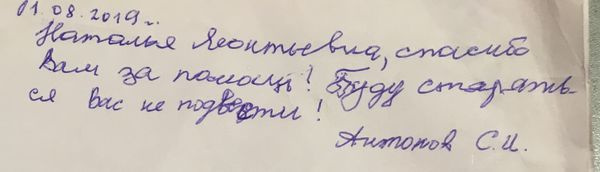 01.08.2019г.
Наталья Леонтьевна, спасибо
Вам за помощь! Буду старать-
ся Вас не подвести!
Антонов С.И.